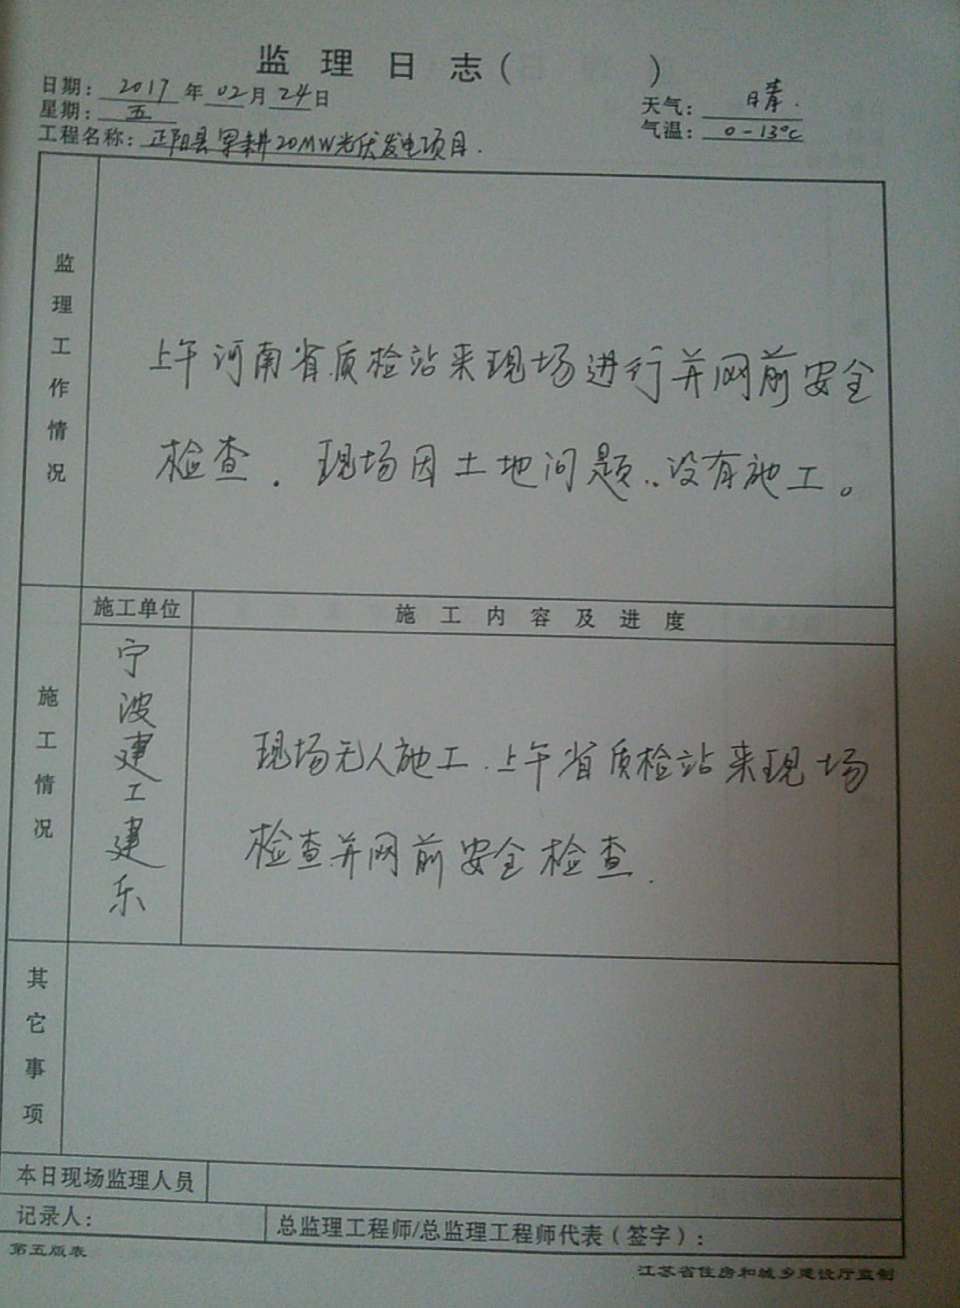 监理日志（ ）
日期：2017年02月24日
星期：五
天气：晴.
气温：0-13℃
工程名称：正阳县罕耕20MW光伏发电项目.
监理工作情况
上午河南省质检站来现场进行并网前安全
检查. 现场因土地问题..没有施工。
施工情况
施工单位
施工内容及进度
宁波建工建乐
现场无人施工.上午省质检站来现场
检查并网前安全检查.
其它事项
本日现场监理人员
记录人：
总监理工程师/总监理工程师代表（签字）：
第五版表
江苏省住房和城乡建设厅监制